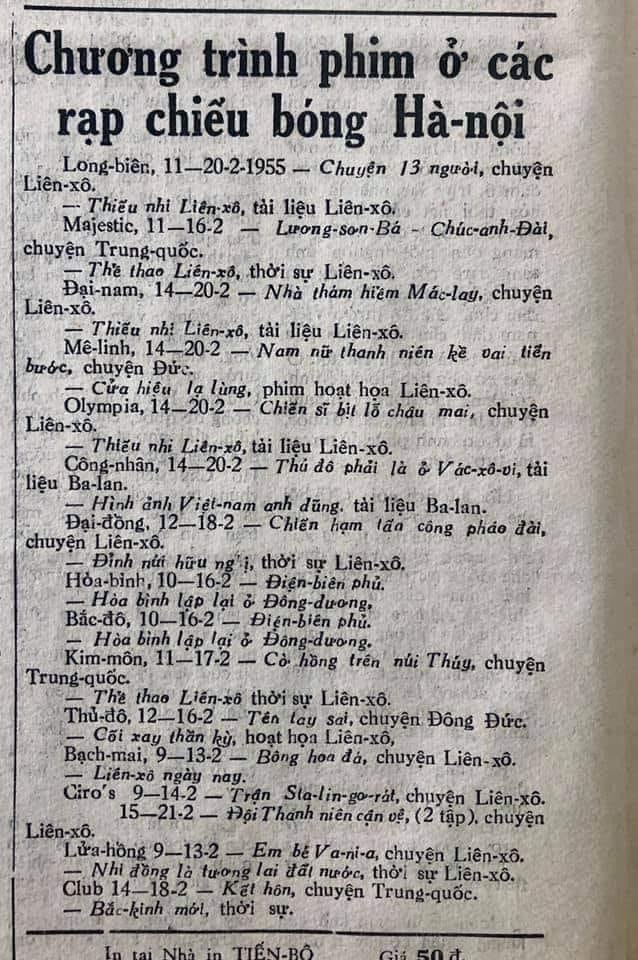 Chương trình phim ở các
rạp chiếu bóng Hà-nội
Long-biên, 11—20-2-1955 — Chuyện 13 người, chuyện
Liên-xô.
— Thiếu nhi Liên-xô, tài liệu Liên-xô.
Majestic, 11—16-2 — Lương-sơn-Bá - Chúc-anh-Đài,
chuyện Trung-quốc.
— Thể thao Liên-xô, thời sự Liên-xô.
Đại-nam, 14—20-2 — Nhà thám hiểm Mác-lay, chuyện
Liên-xô.
— Thiếu nhi Liên-xô, tài liệu Liên-xô.
Mê-linh, 14—20-2 — Nam nữ thanh niên kề vai tiến
bước, chuyện Đức.
— Cửa hiệu lạ lùng, phim hoạt họa Liên-xô.
Olympia, 14—20-2 — Chiến sĩ bịt lỗ châu mai, chuyện
Liên-xô.
— Thiếu nhi Liên-xô, tài liệu Liên-xô.
Công-nhân, 14—20-2 — Thủ đô phải là ở Vác-xô-vi, tài
liệu Ba-lan.
— Hình ảnh Việt-nam anh dũng. tài liệu Ba-lan.
Đại-đồng, 12—18-2 — Chiến hạm tấn công pháo đài,
chuyện Liên-xô.
— Đỉnh núi hữu ng ị, thời sự Liên-xô.
Hòa-bình, 10—16-2 — Điện-biên phủ.
— Hòa bình lập lại ở Đông-dương,
Bắc-đô, 10—16-2 — Điện-biên phủ.
— Hòa bình lập lại ở Đông-dương.
Kim-môn, 11—17-2 — Cờ hồng trên núi Thúy, chuyện
Trung-quốc.
— Thể thao Liên-xô thời sự Liên-xô.
Thủ-đô, 12—16-2 — Tên tay sai, chuyện Đông Đức.
— Cối xay thần kỳ, hoạt họa Liên-xô,
Bạch-mai, 9—13-2 — Bông hoa đá, chuyện Liên-xô.
— Liên-xô ngày nay.
Ciro's 9—14-2 — Trận Sta-lin-gơ-rát, chuyện Liên-xô.
15—21-2 — Đội Thanh niên cận vệ, (2 tập), chuyện
Liên-xô.
Lửa-hồng 9—13-2 — Em bé Va-ni-a, chuyện Liên-xô.
— Nhi đồng là tương lai đất nước, thời sự Liên-xô.
Club 14—18-2 — Kết hôn, chuyện Trung-quốc.
— Bắc-kinh mới, thời sự.
In tại Nhà in TIẾN-BỘ Giá 50 đ.